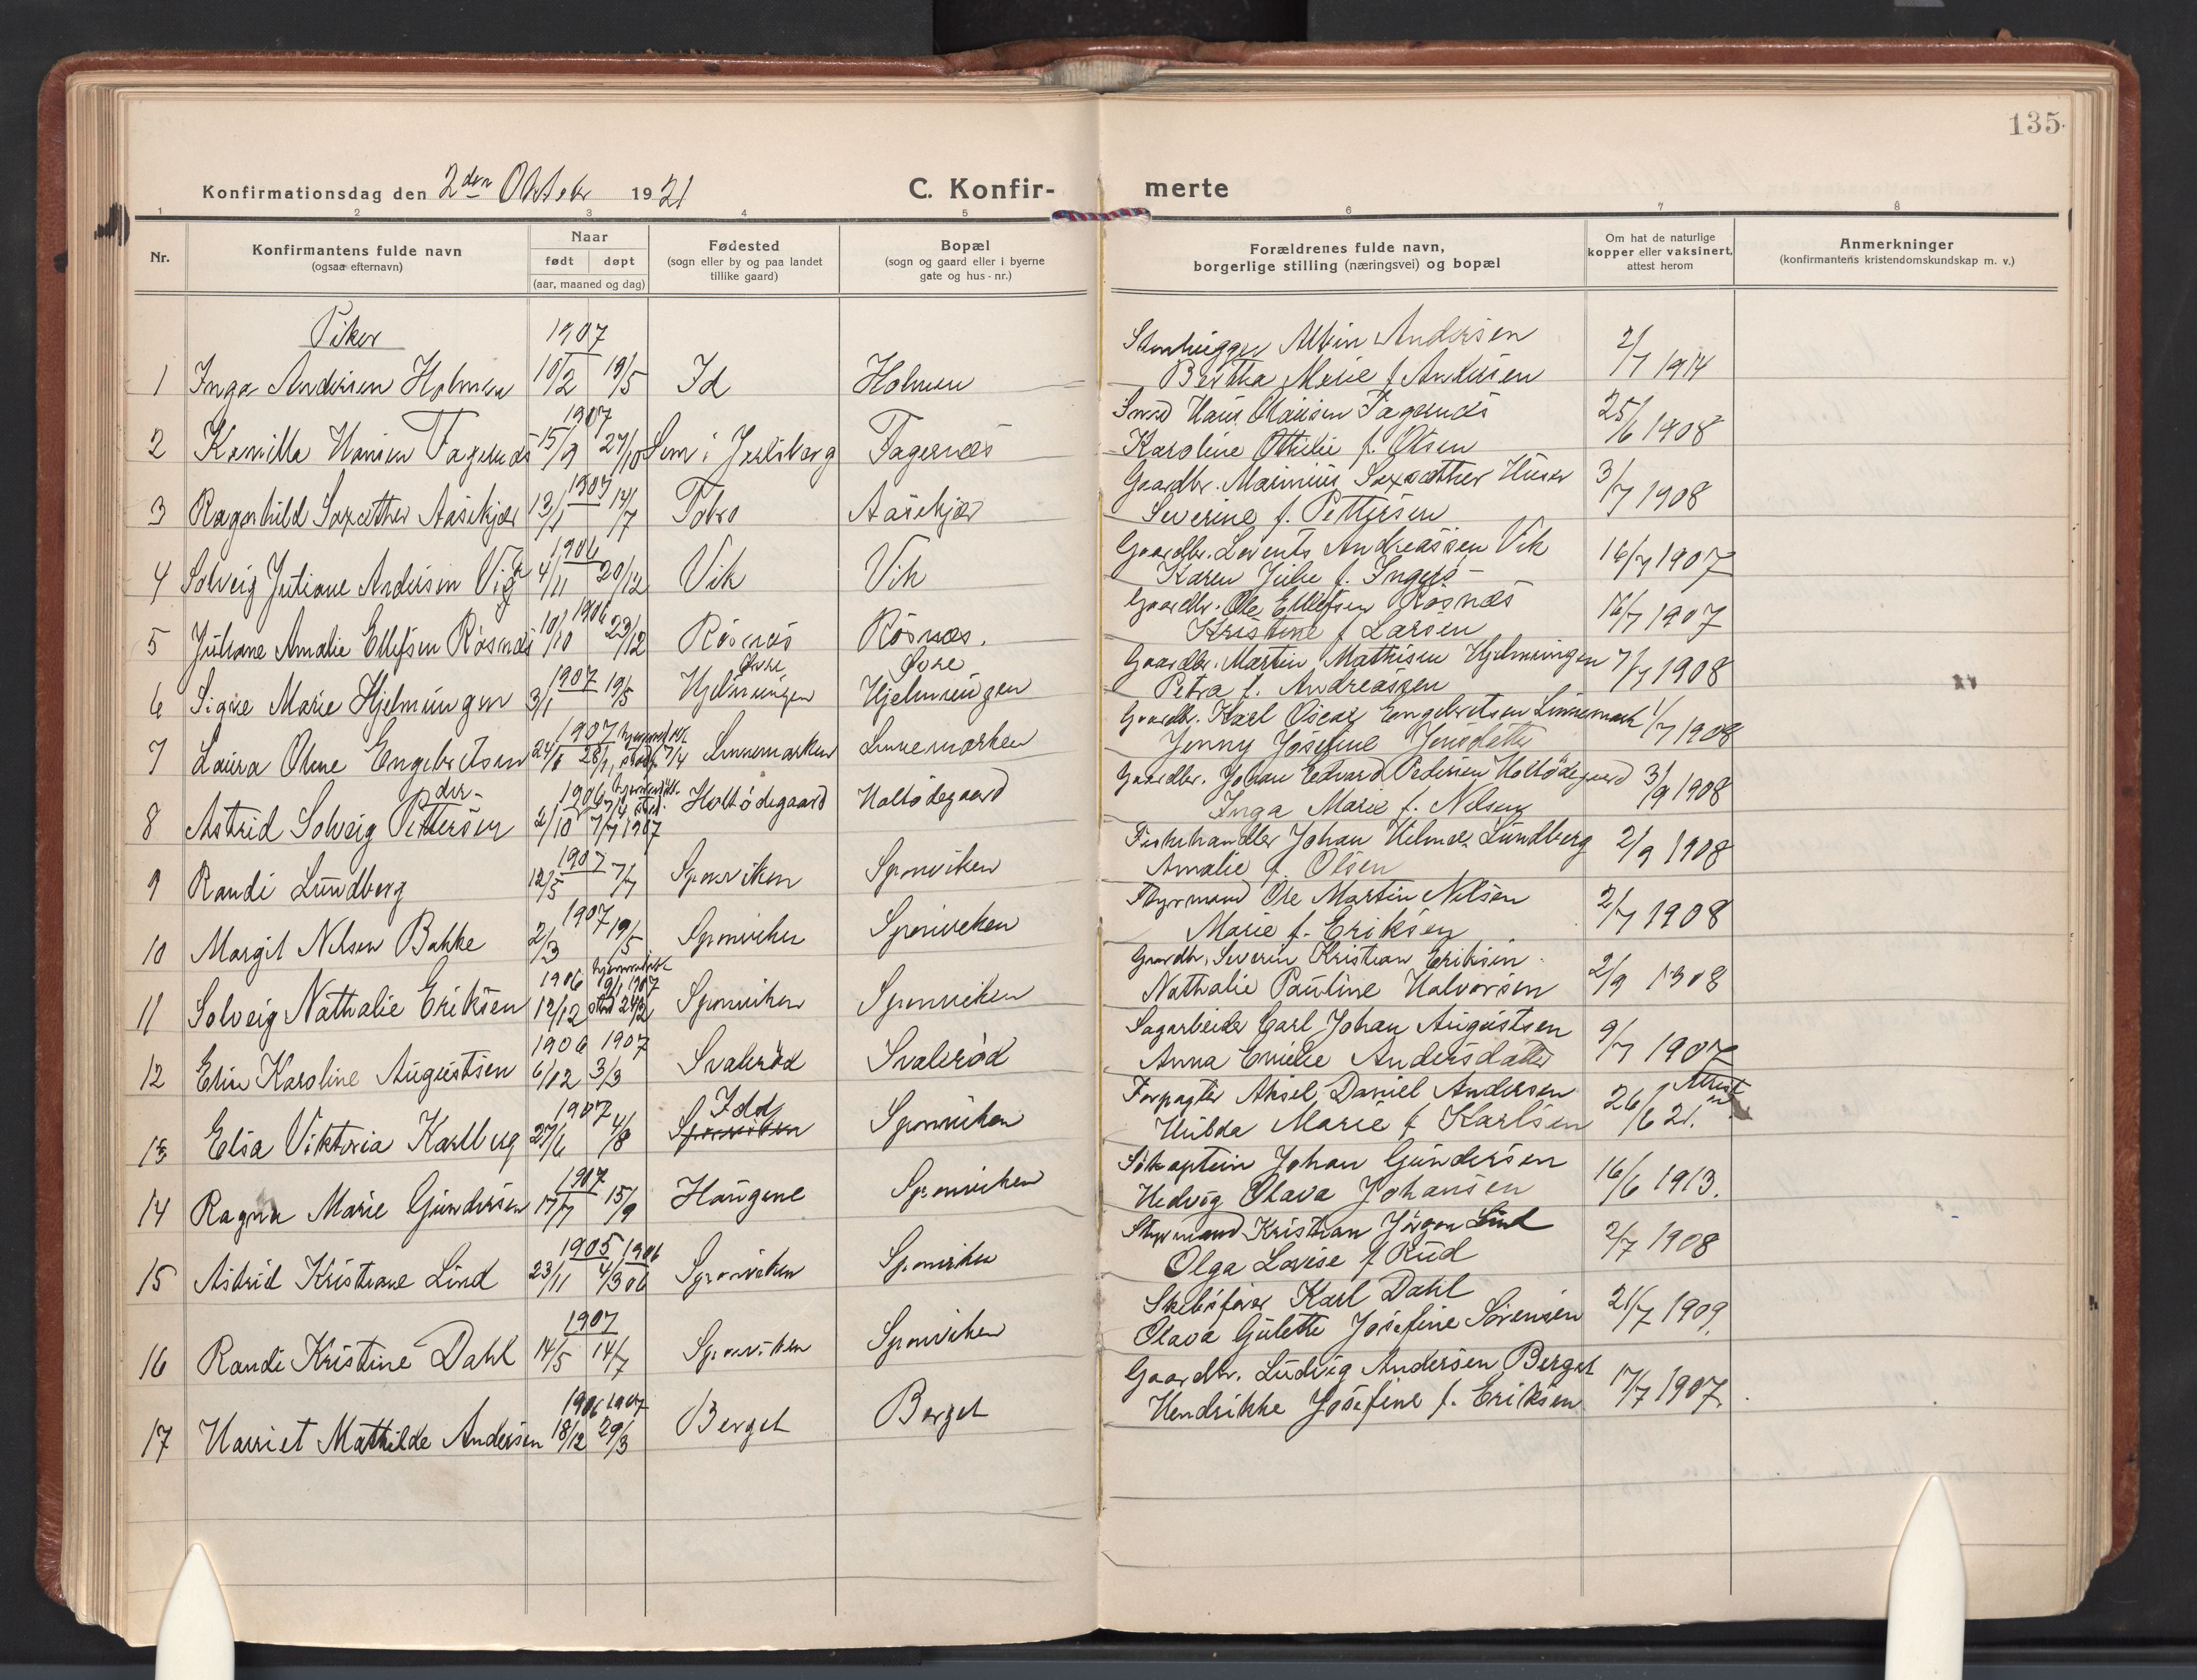 135.
Konfirmationsdag den 2den Oktobr 1921
C. Konfir-
merte
1 2 3 4 5 6 7 8
Nr.
Konfirmantens fulde navn
(ogsaa efternavn)
Naar
født døpt
(aar, maaned og dag)
Fødested
(sogn eller by og paa landet
tillike gaard)
Bopæl
(sogn og gaard eller i byerne
gate og hus-nr.)
Forældrenes fulde navn,
borgerlige stilling (næringsvei) og bopæl
Om hat de naturlige
kopper eller vaksinert,
attest herom
Anmerkninger
(konfirmantens kristendomskundskap m. v.)
Piker
1907
1 Inga Andersen Holmen 10/2 19/5 Id Holmen
Stenhugger Albin Andersen
Bertha Marie f Andersen
2/7 1914
1907
2 Kamilla Hansen Fagernæs 15/9 27/10 Sem i Jarlsberg Fagernæs
Smed Hans Hansen Fagernæs
Karoline Othilie f. Olsen
25/6 1908
1907
3 Ragnhild Saxæther Aasekjær 13/1 14/7 Tobro Aasekjær
Gaardbr. Marinius Saxæther Huser
Severine f. Pettersen
3/7 1908
1906
4 Solveig Juliane Andersen Vik 4/11 20/12 Vik Vik
Gaardbr. Lorents Andreassen Vik
Karen Julie f. Ingers-
16/7 1907
1906
5 Juliane Amalie Ellefsen Røsnæs 10/10 23/12 Røsnæs Røsnæs.
Gaardbr. Ole Ellefsen Røsnæs
Kristine f Larsen
16/7 1907
1907
6 Signe Marie Hjelmungen 3/1 19/5 Hjelmungen Øvre Hjelmungen Øvre
Gaardbr. Martin Mathisen Hjelmungen
Petra f. Andreassen
7/7 1908
1907 hjemmedøbt
7 Laura Oline Engebretsen 24/1 28/1, stadf. 7/4 Linnemarken Linnemarken
Gaardbr. Karl Oscar Engebretsen Linnemark
Jenny Josefine Jonsdatter
1/7 1908
1906 hjemmedøbt
der-
8 Astrid Solveig Pettersen 2/10 7/7 1907 Holtødegaard Holtødegaard
Gaardbr. Johan Edvard Pedersen Holtødegaard
Inga Marie f. Nelsen
3/9 1908
1907
9 Randi Lundberg 12/5 7/7 Sponviken Sponviken
Fiskehandler Johan Helmer Lundberg
Amalie f. Olsen
2/9 1908
1907
10 Margit Nelsen Bakke 2/3 19/5 Sponviken Sponviken
Styrmand Ole Martin Nilsen
Marie f. Eriksen
2/7 1908
1906 hjemmedøbt
1907
11 Solveig Nathalie Eriksen 12/12 stad 24/2 Sponviken Sponviken
Gaardbr. Severin Kristian Eriksen.
Nathalie Pauline Halvorsen
2/9 1908
1906 1907
12 Elin Karoline Augustsen 6/12 3/3 Svalerød Svalerød
Sagarbeider Carl Johan Augustsen
Anna Emilie Andersdatter
9/7 1907
1907
13 Elsa Viktoria Karlberg 27/6 4/8 Idd Sponviken Sponviken
Forpagter Aksel Daniel Andersen
Hulda Marie f Karlsen
26/6 21. Attest
1907
14 Ragna Marie Gundersen 17/7 15/9 Haugene Sponviken
Sökaptein Johan Gundersen
Hedvig Olava Johansen
16/6 1913.
1905 1906
15 Astrid Kristiane Lind 23/11 4/3 06 Sponviken Sponviken
Styrmand Kristian Jörgen Lind
Olga Lovise f Rud
2/7 1908
1907
16 Randi Kristine Dahl 14/5 14/7 Sponviken Sponviken
Skibsfører Karl Dahl
Olava Gulette Josefine Sörensen
21/7 1909.
1906 1907
17 Harriet Mathilde Andersen 18/12 29/3 Berget Berget
Gaardbr. Ludvig Andersen Berget
Hendrikke Josefine f. Eriksen
17/7 1907